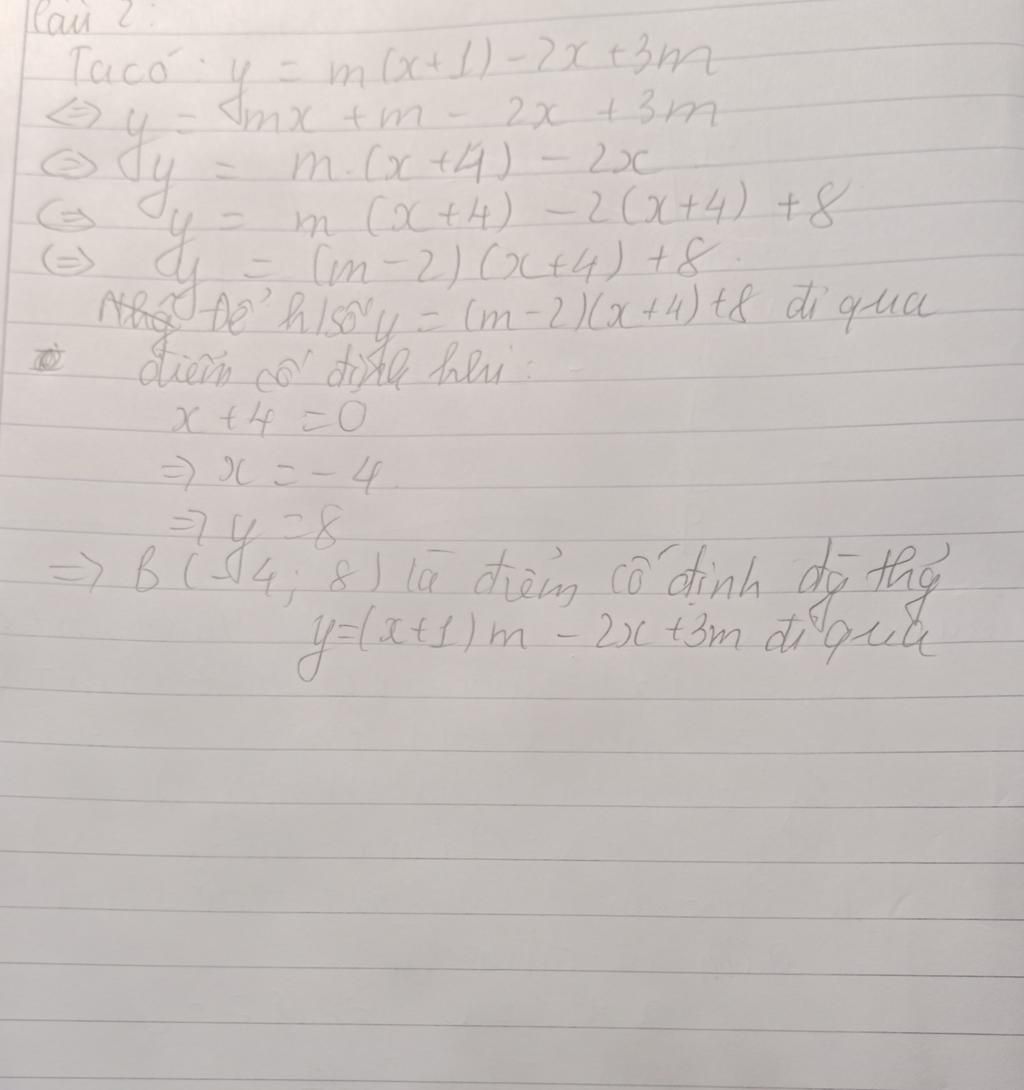 Câu 2:
Ta có: y = m(x+1) - 2x + 3m
<=> y = mx + m - 2x + 3m
<=> y = m.(x+4) - 2x
<=> y = m (x+4) - 2(x+4) + 8
<=> y = (m-2) (x+4) + 8.
Để h/số y = (m-2)(x+4)+8 đi qua
điểm cố định khi:
x + 4 = 0
=> x = -4
=> y = 8
=> B (-4; 8) là điểm cố định đồ thị
y=(x+1)m - 2x + 3m đi qua